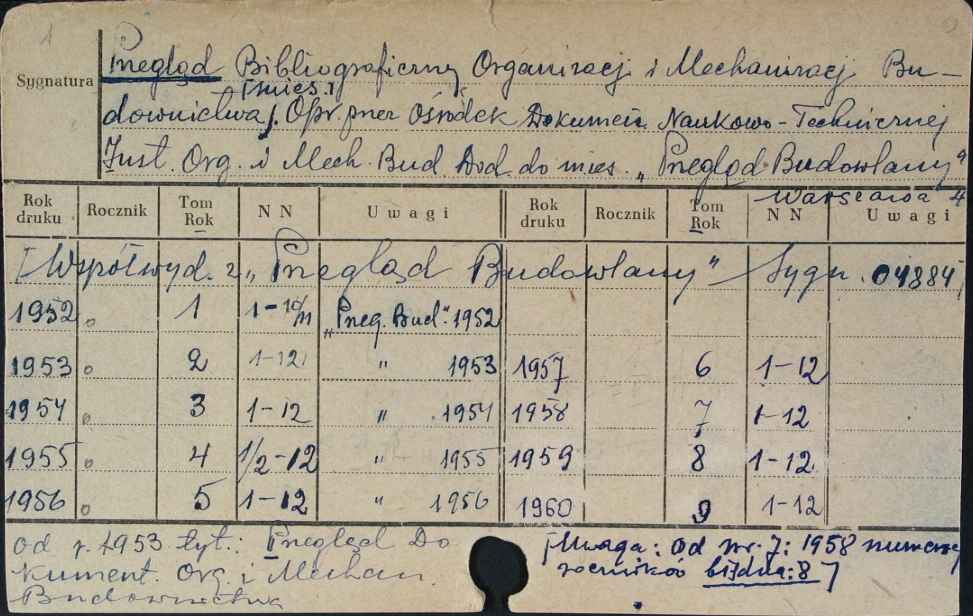 1
Sygnatura
Przegląd Bibliograficzny Organizacji i Mechanizacji Bu-
[mies.]
downictwa. Opr. przez Ośrodek Dokument. Naukowo-Technicznej
Inst. Org. i Mech. Bud. Dod. do mies. „Przegląd Budowlany"
Warszawa 4
Rok druku Rocznik Tom Rok NN Uwagi Rok druku Rocznik Tom Rok NN Uwagi
[Współwyd. z „Przegląd Budowlany" Sygn. 04884]
1952 1 1-10/11 „Przeg. Bud." 1952
1953 2 1-12 " 1953 1957 6 1-12
1954 3 1-12 " 1954 1958 7 1-12
1955 4 1/2-12 " 1955 1959 8 1-12
1956 5 1-12 " 1956 1960 9 1-12
Od r. 1953 tyt.: Przegląd Do
kument. Org. i Mechan.
Budownictwa
[Uwaga: Od nr. 7: 1958 numeracja
roczników błędna: 8]